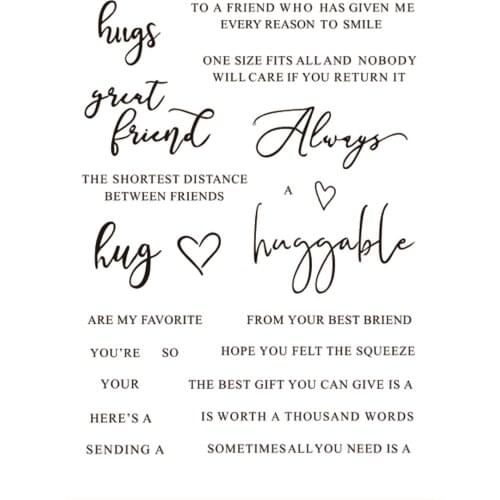 hugs
TO A FRIEND WHO HAS GIVEN ME
EVERY REASON TO SMILE
ONE SIZE FITS ALLAND NOBODY
WILL CARE IF YOU RETURN IT
great
friend
Always
THE SHORTEST DISTANCE
BETWEEN FRIENDS
A
hug
huggable
ARE MY FAVORITE
FROM YOUR BEST BRIEND
YOU'RE SO
HOPE YOU FELT THE SQUEEZE
YOUR
THE BEST GIFT YOU CAN GIVE IS A
HERE'S A
IS WORTH A THOUSAND WORDS
SENDING A
SOMETIMESALLYOU NEED IS A